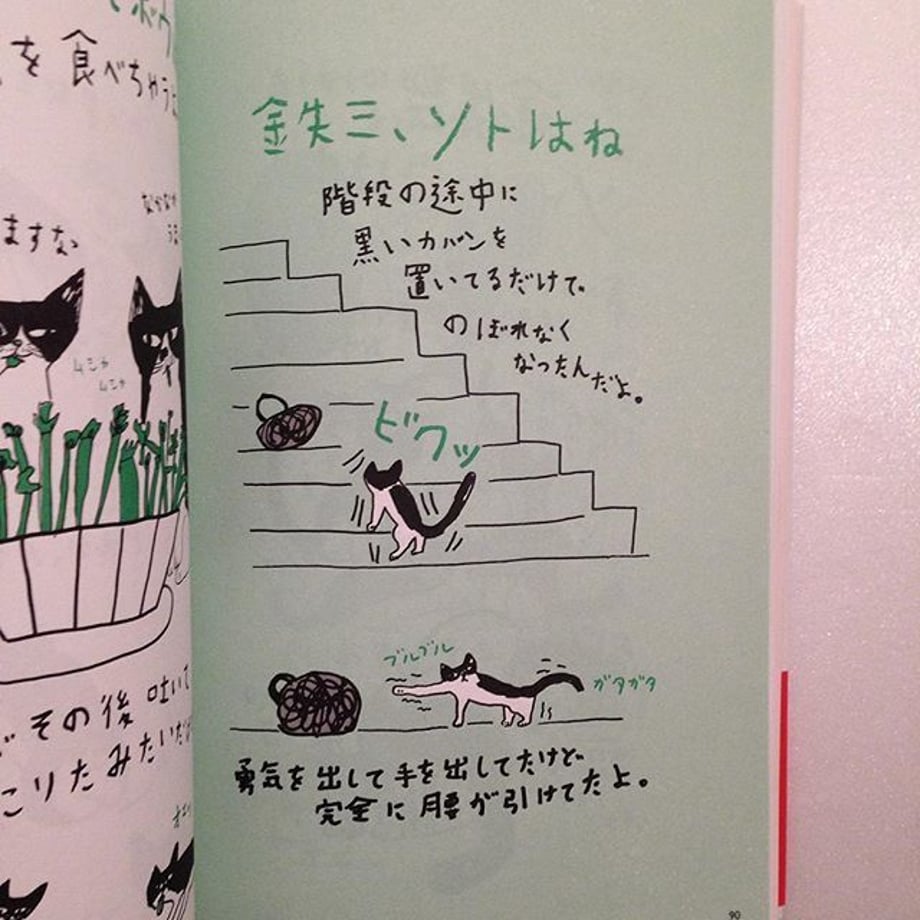 を食べちゃう
ますな
ムシャ
ムシャ
その後 吐いて
こりたみたいだ
鉄三、ソトはね
階段の途中に
黒いカバンを
置いてるだけで
のぼれなく
なったんだよ。
ビクッ
ブルブル
ガタガタ
勇気を出して手を出してたけど
完全に腰が引けてたよ。
90